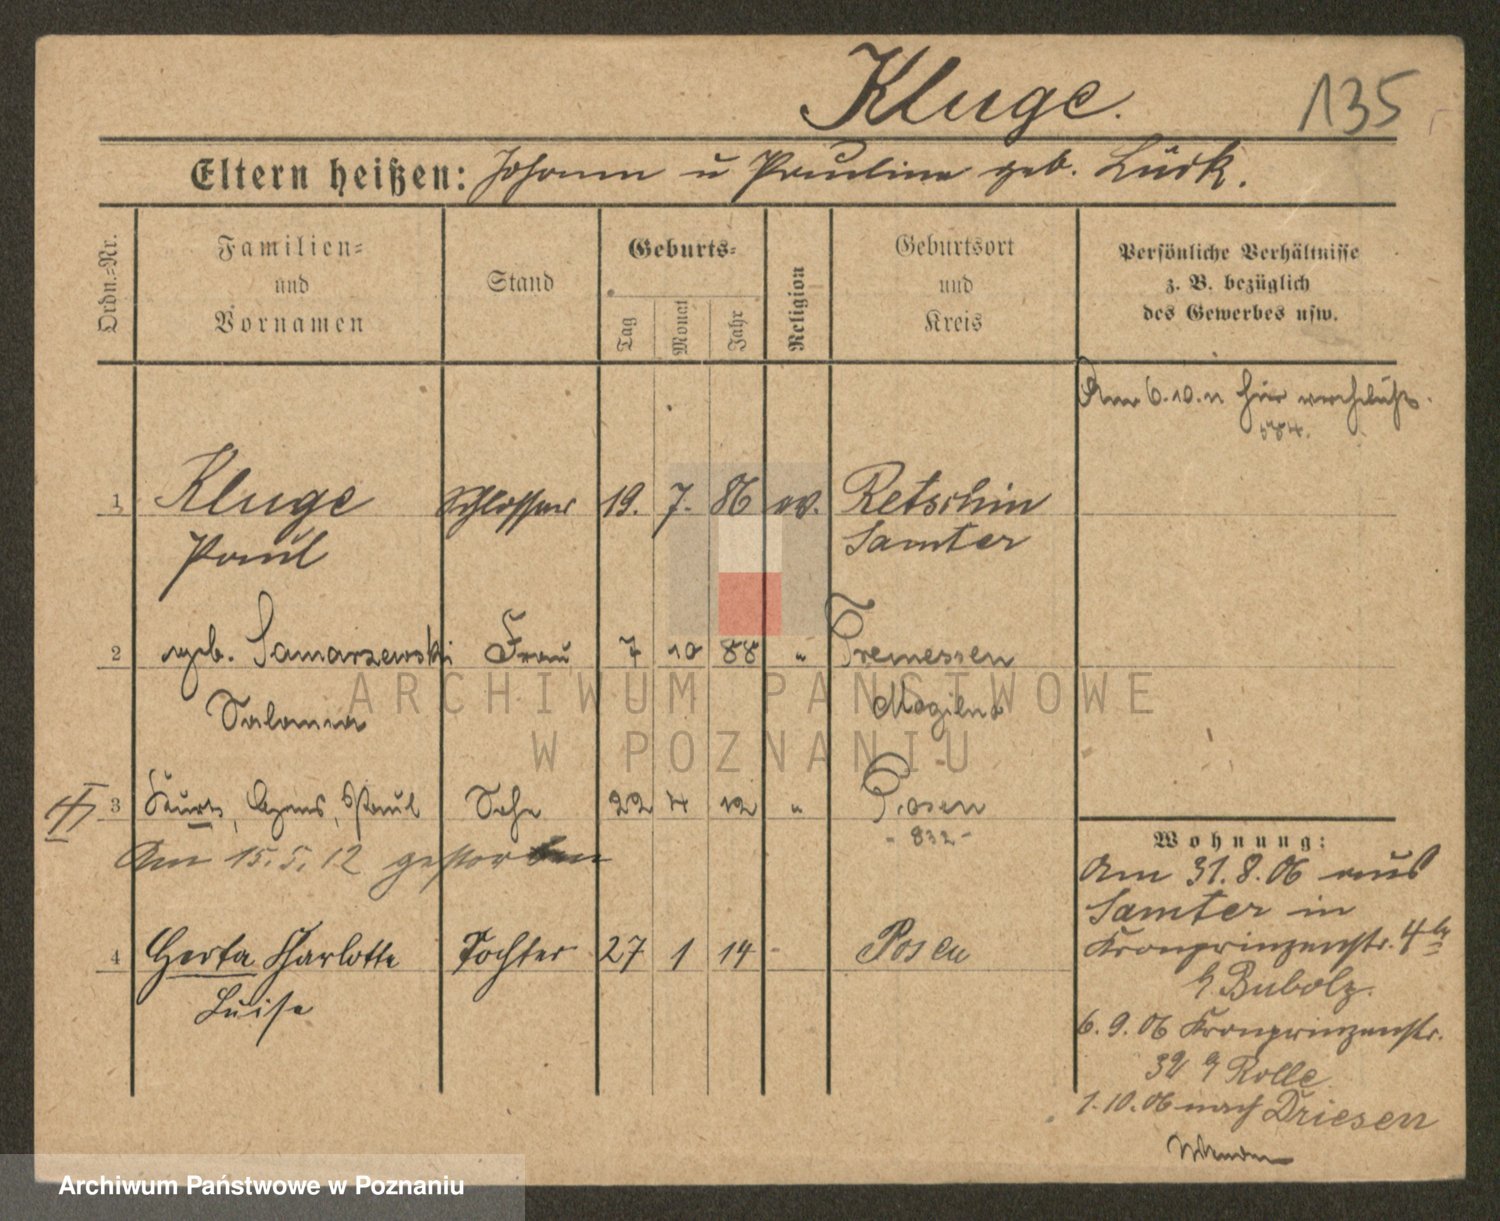 Kluge.
135
Eltern heißen: Johann u Pauline geb. Lück.
Ordn.=Nr.
Familien=
und
Vornamen
Stand
Geburts=
Tag
Monat
Jahr
Religion
Geburtsort
und
Kreis
Persönliche Verhältnisse
z. B. bezüglich
des Gewerbes usw.
Am 6.10.11 hier verehelicht.
1 Kluge Schlosser 19. 7. 86 ev. Retschin
Paul Samter
2 geb. Samarzewski Frau 7 10 88 " Tremessen
Salomea Mogilno
3 Kurt, Paul Sohn 22 4 12 " Posen
- 832 -
Am 15.5.12 gestorben
4 Herta Charlotte Tochter 27 1 14 - Posen
Luise
Wohnung:
Am 31.8.06 aus
Samter in
Kronprinzenstr. 4
b Bubolz.
6.9.06 Kronprinzenstr.
32 b Rolle
1.10.06 nach Driesen
Wenden
ARCHIWUM PAŃSTWOWE
W POZNANIU
Archiwum Państwowe w Poznaniu